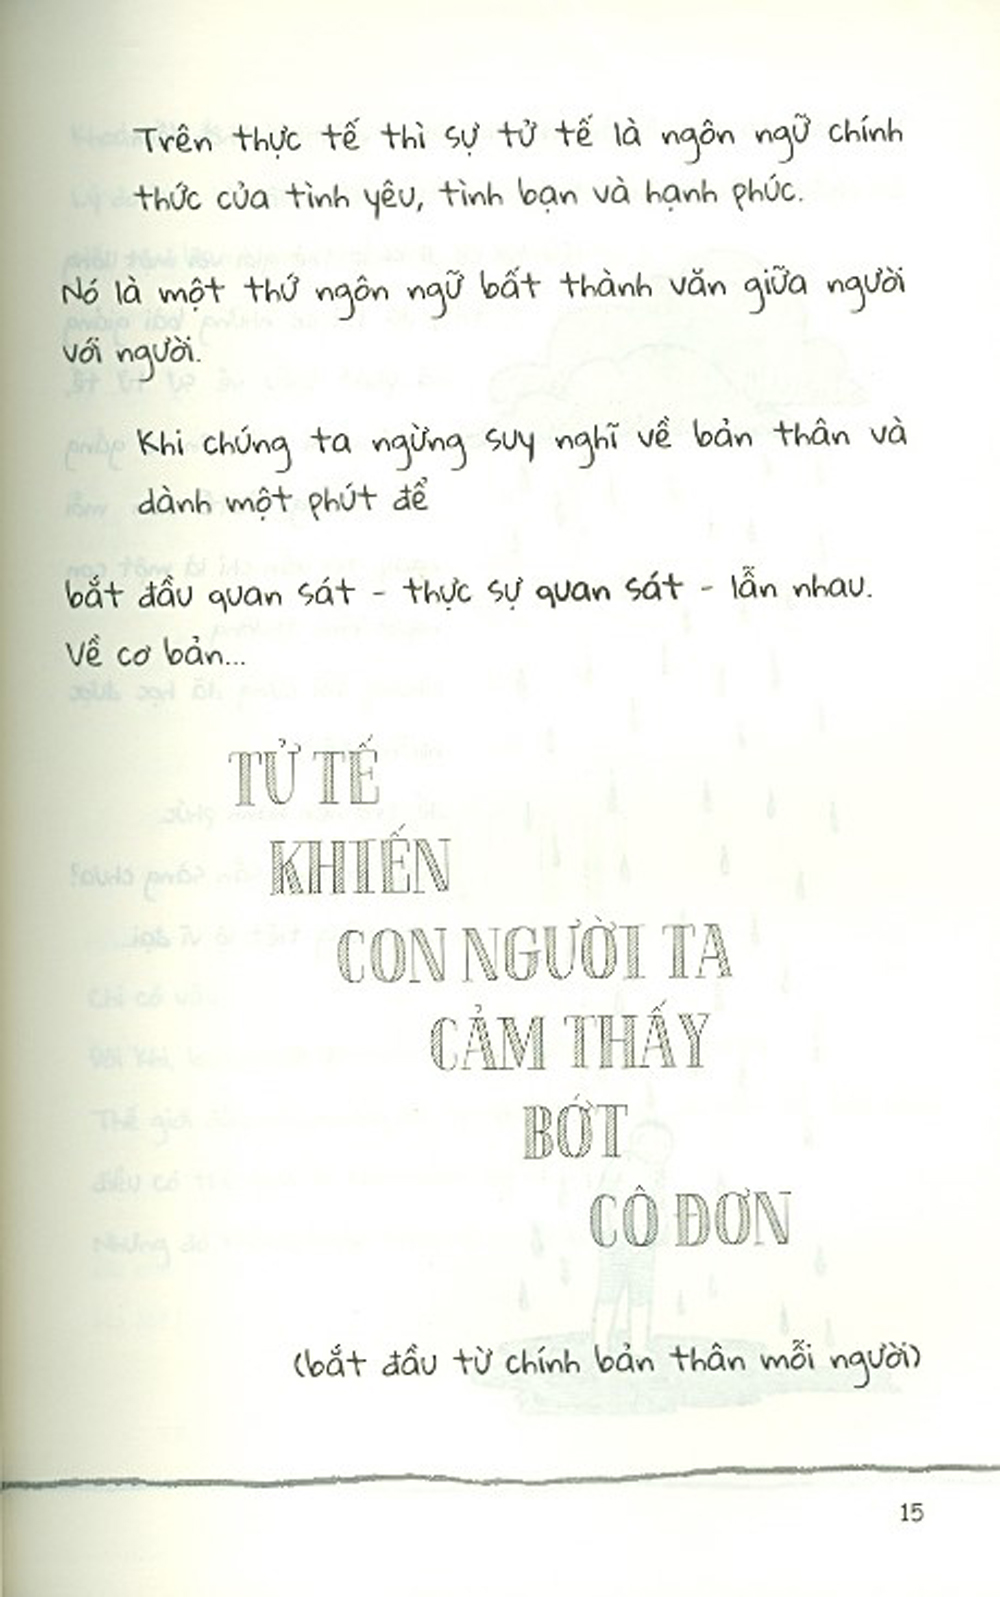 Trên thực tế thì sự tử tế là ngôn ngữ chính
thức của tình yêu, tình bạn và hạnh phúc.
Nó là một thứ ngôn ngữ bất thành văn giữa người
với người.
Khi chúng ta ngừng suy nghĩ về bản thân và
dành một phút để
bắt đầu quan sát - thực sự quan sát - lẫn nhau.
Về cơ bản...
TỬ TẾ
KHIẾN
CON NGƯỜI TA
CẢM THẤY
BỚT
CÔ ĐƠN
(bắt đầu từ chính bản thân mỗi người)
15